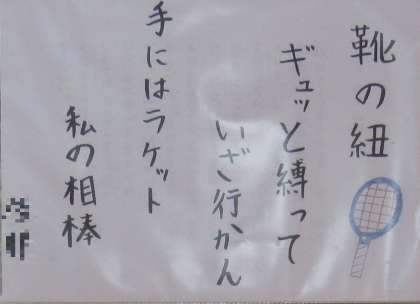 靴の紐
ギュッと縛って
いざ行かん
手にはラケット
私の相棒